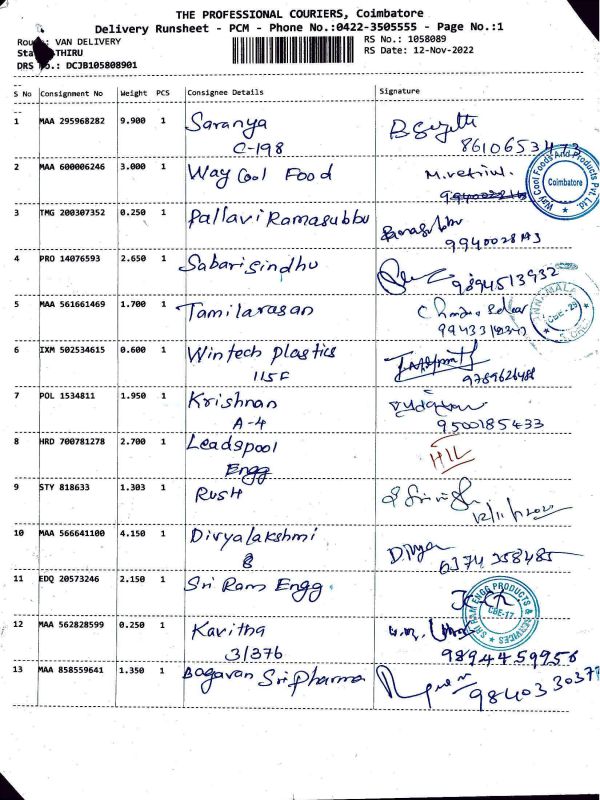 THE PROFESSIONAL COURIERS, Coimbatore
Delivery Runsheet - PCM - Phone No.:0422-3505555 - Page No.:1
VAN DELIVERY
RS No.: 1058089
THIRU
RS Date: 12-Nov-2022
DRS No.: DCJB105808901
S No Consignment No Weight PCS Consignee Details Signature
1 MAA 295968282 9.900 1 Saranya
C-198
2 MAA 600006246 3.000 1 Way Cool Food M. vetrivel
Way Cool Foods And Products Pvt. Ltd.
Coimbatore
3 TMG 200307352 0.250 1 Pallavi Ramasubbu Ramasubbu
4 PRO 14076593 2.650 1 Sabarisindhu
9894513932
5 MAA 561661469 1.700 1 Tamilarasan
6 IXM 502534615 0.600 1 Wintech Plastics
115F
7 POL 1534811 1.950 1 Krishnan
A-4 9500185433
8 HRD 700781278 2.700 1 Leadspool
Engg
9 STY 818633 1.303 1 Rush
12/11/2022
10 MAA 566641100 4.150 1 Divyalakshmi Divya
8 6374358485
11 EDQ 20573246 2.150 1 Sri Ram Engg.
SRI RAM ENGG PRODUCTS & SERVICES
CBE-17
12 MAA 562828599 0.250 1 Kavitha
3/376 9894459956
13 MAA 858559641 1.350 1 Bagavan Sri Pharma